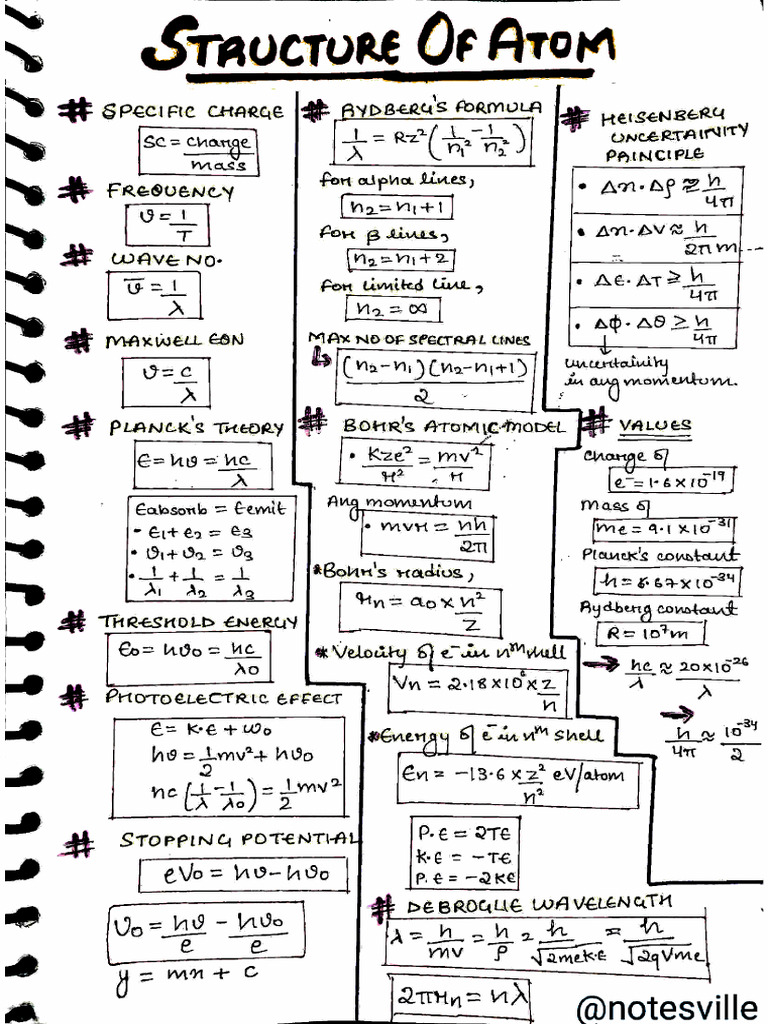 STRUCTURE OF ATOM
# SPECIFIC CHARGE
SC = charge/mass
# FREQUENCY
ν = 1/T
# WAVE NO.
ν̅ = 1/λ
# MAXWELL EQN
ν = c/λ
# PLANCK'S THEORY
E = hν = hc/λ
Eabsorb = Eemit
• E1 + E2 = E3
• ν1 + ν2 = ν3
• 1/λ1 + 1/λ2 = 1/λ3
# THRESHOLD ENERGY
E0 = hν0 = hc/λ0
# PHOTOELECTRIC EFFECT
E = K.E + W0
hν = 1/2 mv² + hν0
hc (1/λ - 1/λ0) = 1/2 mv²
# STOPPING POTENTIAL
eV0 = hν - hν0
V0 = hν/e - hν0/e
y = mx + c
# RYDBERG'S FORMULA
1/λ = RZ² (1/n1² - 1/n2²)
for alpha lines,
n2 = n1 + 1
for β lines,
n2 = n1 + 2
for limited line,
n2 = ∞
MAX NO OF SPECTRAL LINES
↳ (n2 - n1)(n2 - n1 + 1)/2
# BOHR'S ATOMIC MODEL
• KZe²/r² = mv²/r
Ang momentum
• mvr = nh/2π
*Bohr's radius,
rn = a0 × n²/Z
* Velocity of e⁻ in nth shell
Vn = 2.18×10⁶ × Z/n
*Energy of e⁻ in nth shell
En = -13.6 × Z²/n² eV/atom
P.E = 2TE
K.E = -TE
P.E = -2KE
# DEBROGLIE WAVELENGTH
λ = h/mv = h/p = h/√2meK.E = h/√2qVme
2πrn = nλ
# HEISENBERG
UNCERTAINITY
PRINCIPLE
• Δx · Δp ≈ h/4π
• Δx · ΔV ≈ h/2πm
• ΔE · ΔT ≥ h/4π
• Δϕ · Δθ ≥ h/4π
uncertainity
in ang momentum.
# VALUES
Charge of
e⁻ = 1.6 × 10⁻¹⁹
Mass of
me = 9.1 × 10⁻³¹
Planck's constant
h = 6.67 × 10⁻³⁴
Rydberg constant
R = 10⁷ m
→ hc/λ ≈ 20×10⁻²⁶/λ
→ h/4π ≈ 10⁻³⁴/2
@notesville